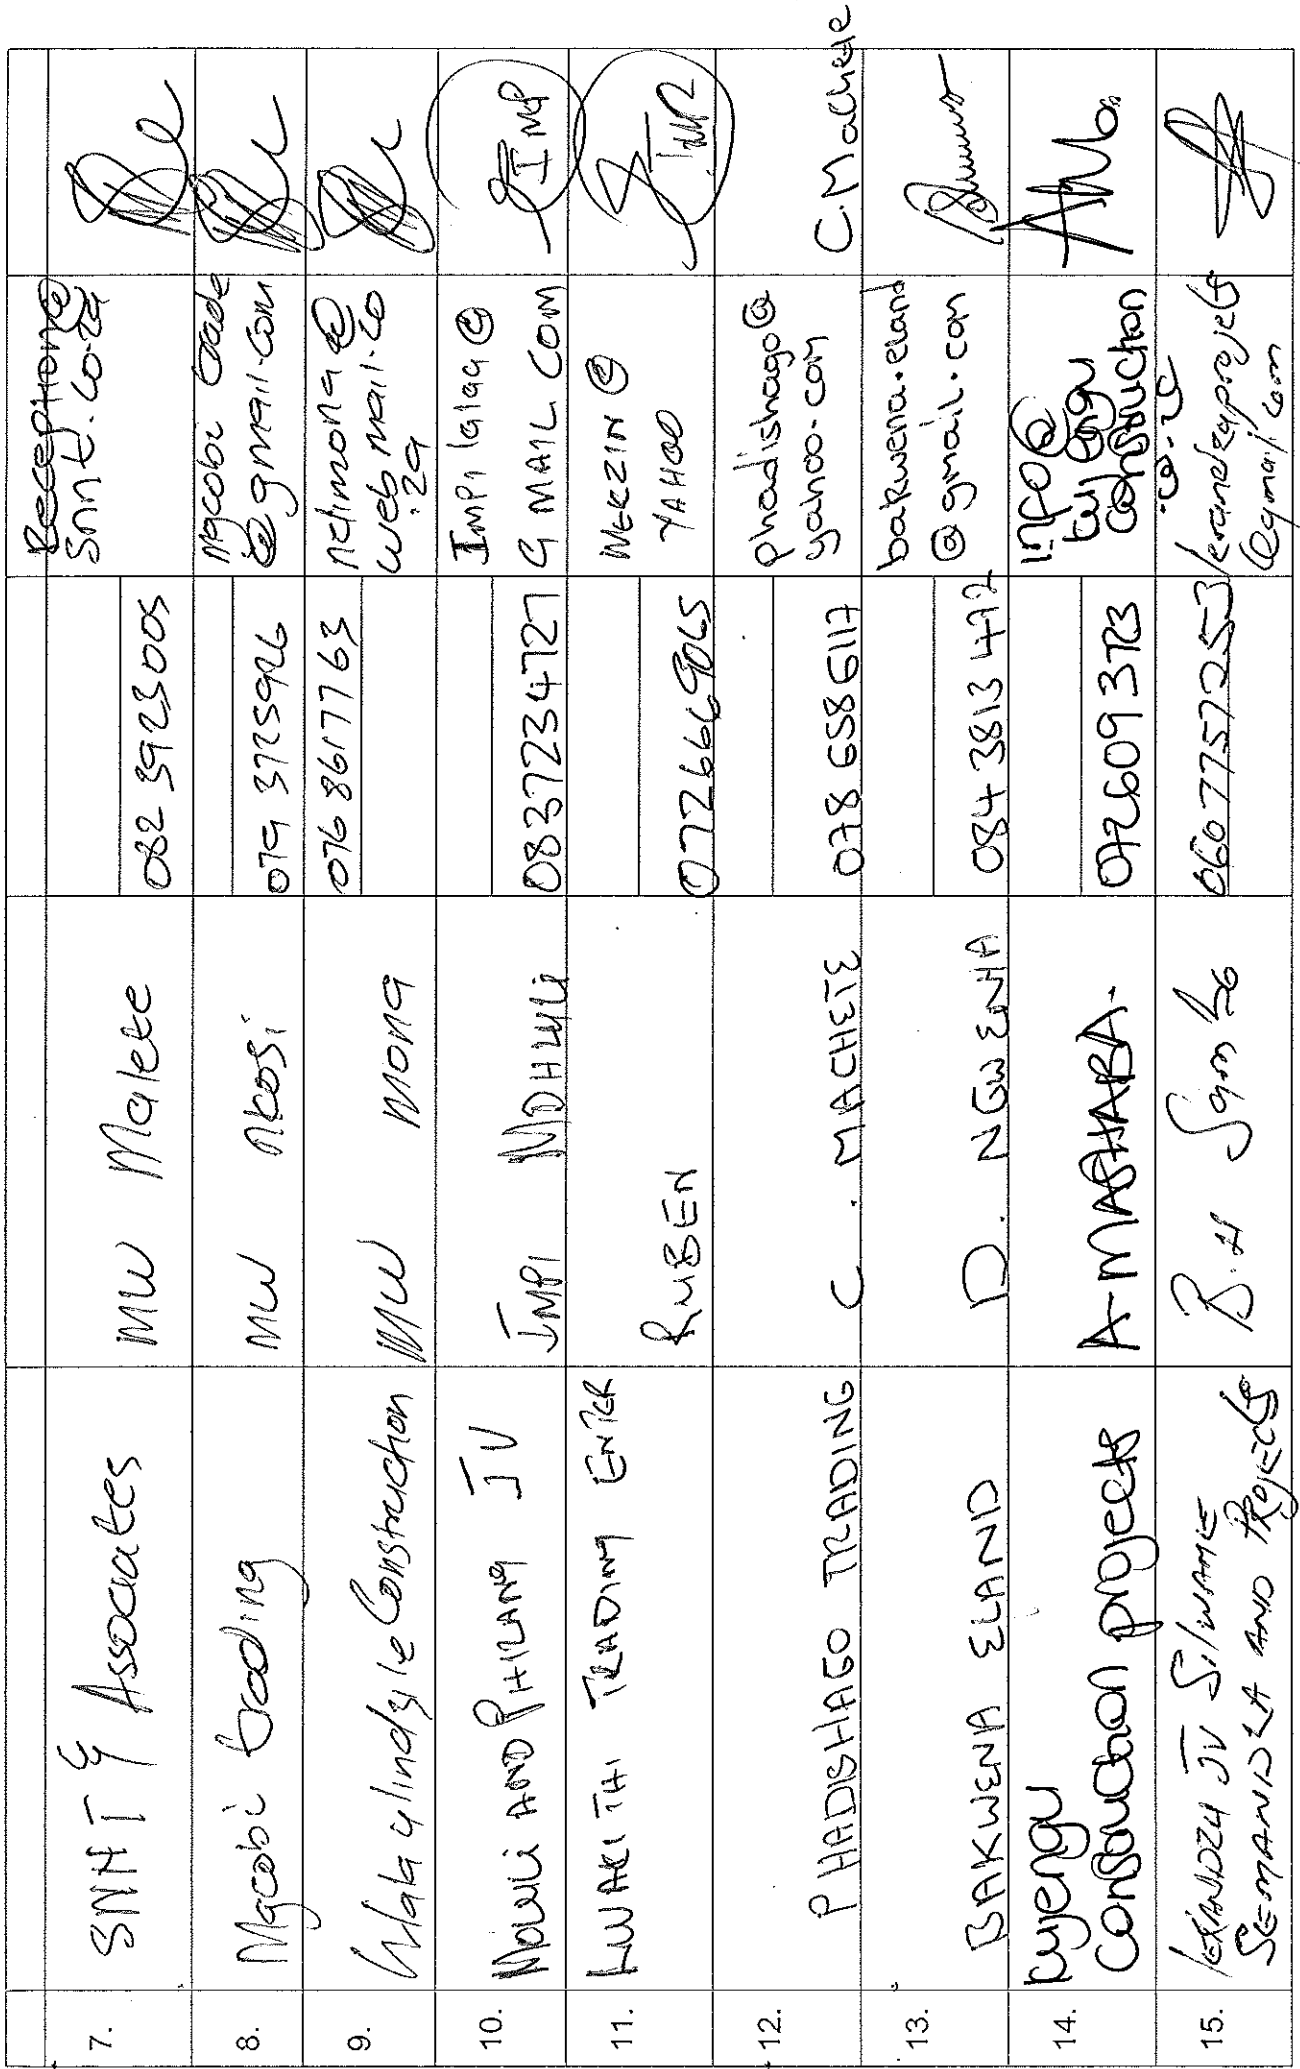 7.
SNHT & Associates
MW Malete
082 3923005
Reception@
snnt.co.za
8.
Mgcobi trading
MW Nkosi
079 3725926
Mgcobi trade
@gmail.com
9.
Construction
MW Mona
076 8617763
melimona@
webmail.co
.za
10.
AND PHIRANG JV
IMPI MDHULI
0837234727
IMPI lalaa@
GMAIL.COM
IMP
11.
TRADING ENTER
RUBEN
0726669065
@
YAHOO
IMP
12.
PHADISHAGO TRADING
C. MACHETE
078 6586117
phadishago@
yahoo.com
C.Machete
13.
BAKWENA ELAND
D. NGWENYA
084 3813 472
bakwena.eland
@gmail.com
14.
Kuyengu
Construction projects
A-MASHABA-
0726093723
info@
kuyengu
construction
.co.za
15.
JV SILWANE
SEMANDLA AND PROJECTS
B.H
0607757253
@gmail.com